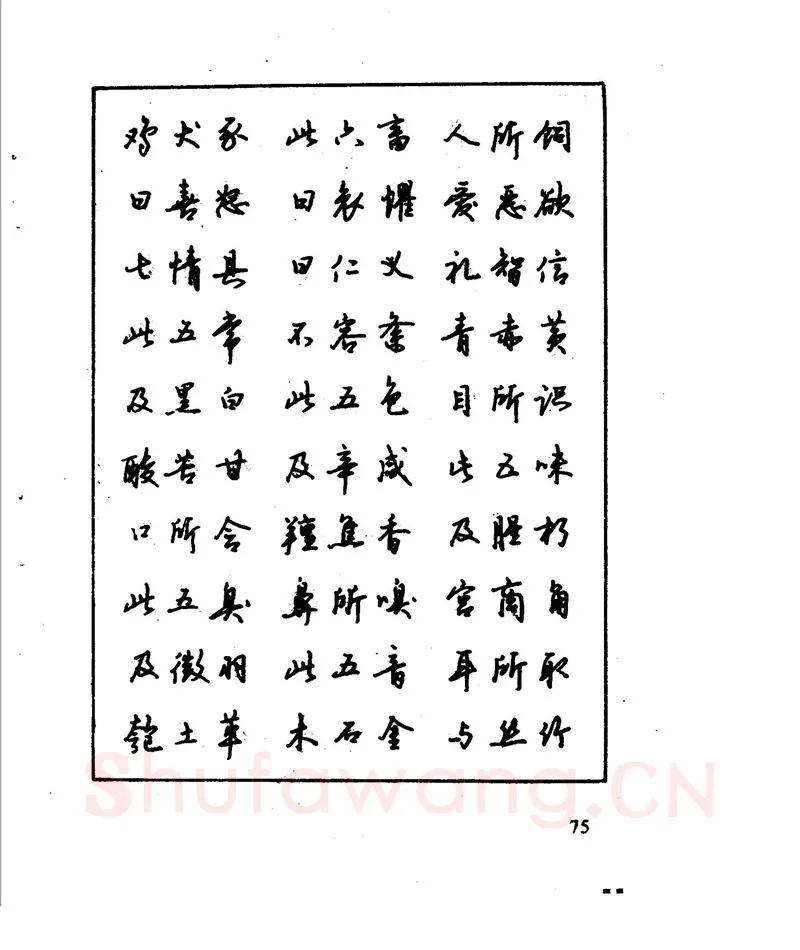 鸡犬豕 此六畜 人所饲
曰喜怒 曰哀惧 爱恶欲
七情具 曰仁义 礼智信
此五常 不容紊 青赤黄
及黑白 此五色 目所识
酸苦甘 及辛咸 此五味
口所含 羶焦香 及腥朽
此五臭 鼻所嗅 宫商角
及徵羽 此五音 耳所取
匏土革 木石金 与丝竹
Shufawang.CN
75